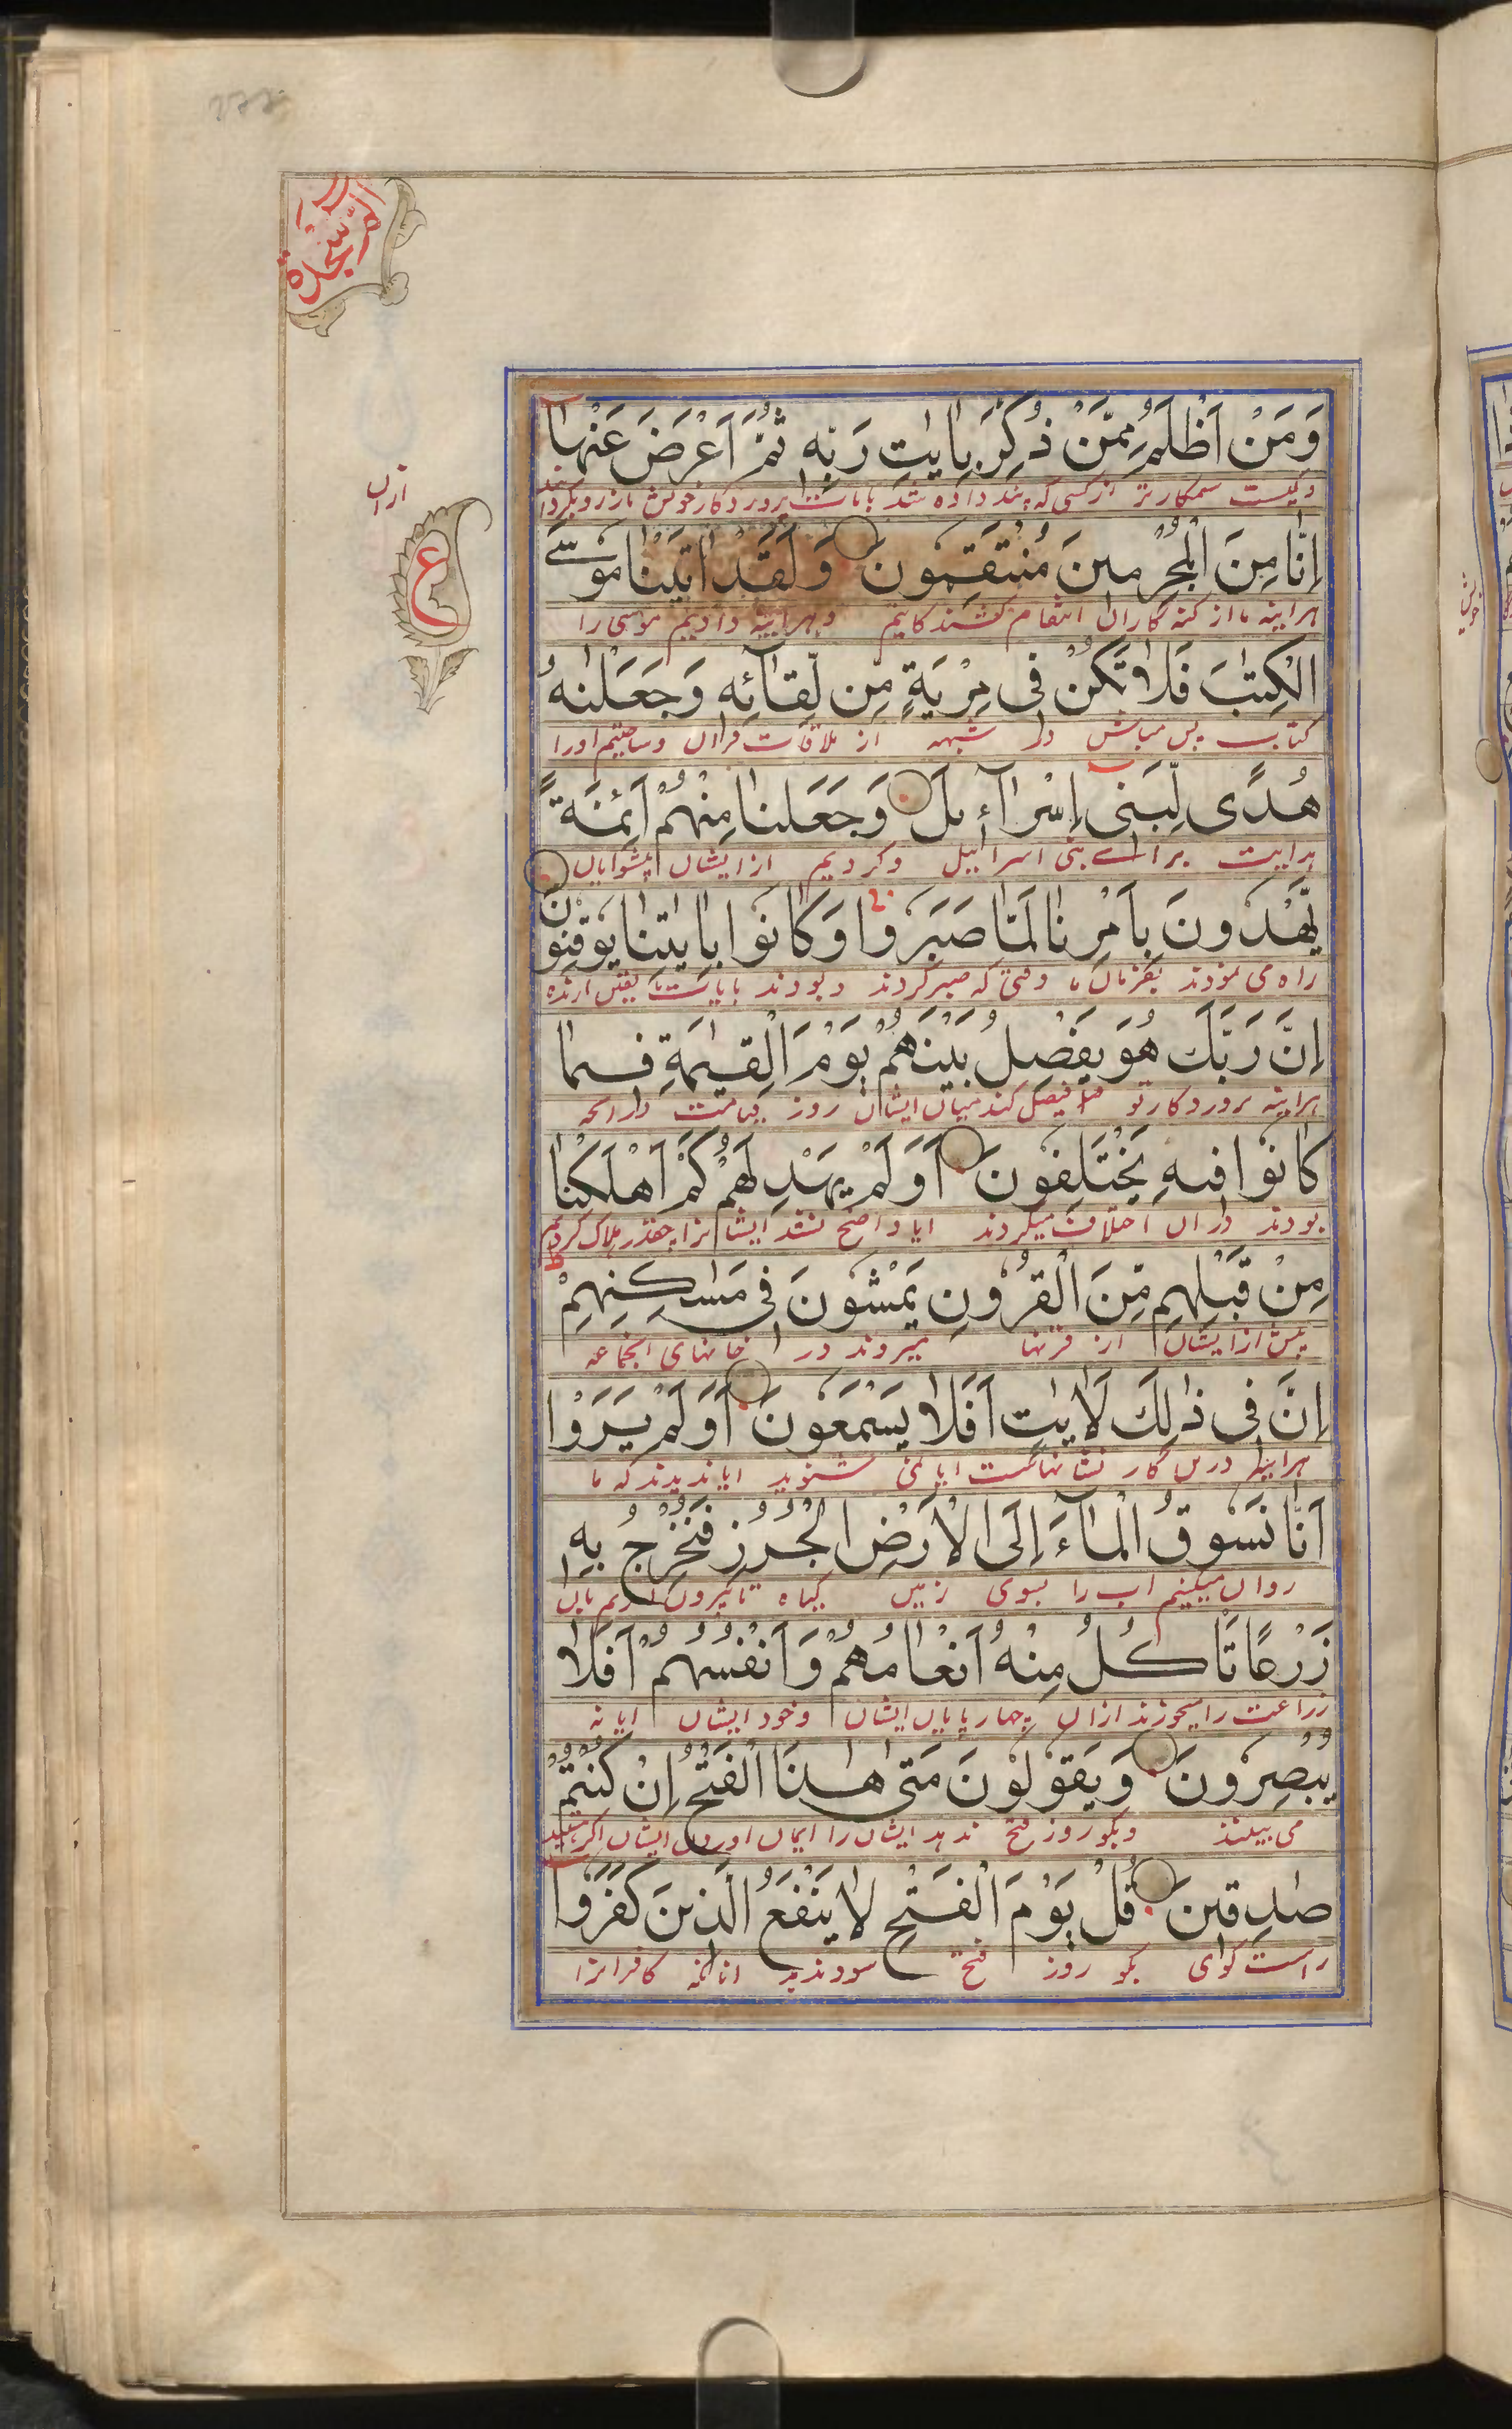 الم سجدة
وَمَنْ اَظْلَمُ مِمَّنْ ذُكِّرَ بِاٰيٰتِ رَبِّهٖ ثُمَّ اَعْرَضَ عَنْهَا
وكيست ستمكارتر ازكسى كه پند داده شد بايات پروردكار خويش باز روبكردانيد
ازان
اِنَّا مِنَ الْمُجْرِمِيْنَ مُنْتَقِمُوْنَ وَلَقَدْ اٰتَيْنَا مُوْسَے
ع
هراينه ما از كنه كاران انتقام كشندكانيم وبهراينه داديم موسى را
الْكِتٰبَ فَلَا تَكُنْ فِى مِرْيَةٍ مِّن لِّقَآئِهٖ وَجَعَلْنٰهُ
كتاب پس مباش در شبهه از ملاقات قران وساختيم اورا
هُدًى لِّبَنِى اِسْرَآءِيلَ وَجَعَلْنَا مِنْهُمْ اَئِمَّةً
هدايت براے بنى اسرائيل وكرديم ازايشان پيشوايان
يَّهْدُونَ بِاَمْرِنَا لَمَّا صَبَرُوْا وَكَانُوا بِاٰيٰتِنَا يُوقِنُونَ
راه مى نمودند بفرمان ما وقتى كه صبر كردند وبودند بايات ما يقين ارنده
اِنَّ رَبَّكَ هُوَ يَفْصِلُ بَيْنَهُمْ يَوْمَ الْقِيٰمَةِ فِيمَا
هراينه پروردكار تو فيصل كند ميان ايشان روز قيامت درانچه
كَانُوا فِيهِ يَخْتَلِفُونَ اَوَلَمْ يَهْدِ لَهُمْ كَمْ اَهْلَكْنَا
بودند دران اختلاف ميكردند ايا واضح نشد ايشانرا چقدر هلاك كرديم
مِنْ قَبْلِهِمْ مِّنَ الْقُرُوْنِ يَمْشُونَ فِى مَسٰكِنِهِمْ
پيش ازايشان از قرنها ميروند در خانهاى انجماعه
اِنَّ فِى ذٰلِكَ لَاٰيٰتٍ اَفَلَا يَسْمَعُونَ اَوَلَمْ يَرَوْا
هراينه درين كار نشانهاست ايا نمى شنويد ايا نديدند كه ما
اَنَّا نَسُوقُ الْمَآءَ اِلَى الْاَرْضِ الْجُرُزِ فَنُخْرِجُ بِهٖ
روان ميكنيم اب را بسوى زمين كياه تا بيرون اريم بان
زَرْعًا تَاْكُلُ مِنْهُ اَنْعَامُهُمْ وَاَنْفُسُهُمْ اَفَلَا
زراعت را ميخورند ازان چهارپايان ايشان وخود ايشان ايا نه
يُبْصِرُونَ وَيَقُوْلُوْنَ مَتٰى هٰذَا الْفَتْحُ اِنْ كُنْتُمْ
مى بينند وبكو روز فتح ندهد ايشان را ايمان اوردن ايشان اكر هستيد
صٰدِقِينَ قُلْ يَوْمَ الْفَتْحِ لَا يَنْفَعُ الَّذِينَ كَفَرُوْا
راست كواى بكو روز فتح سود ندهد كافرانرا